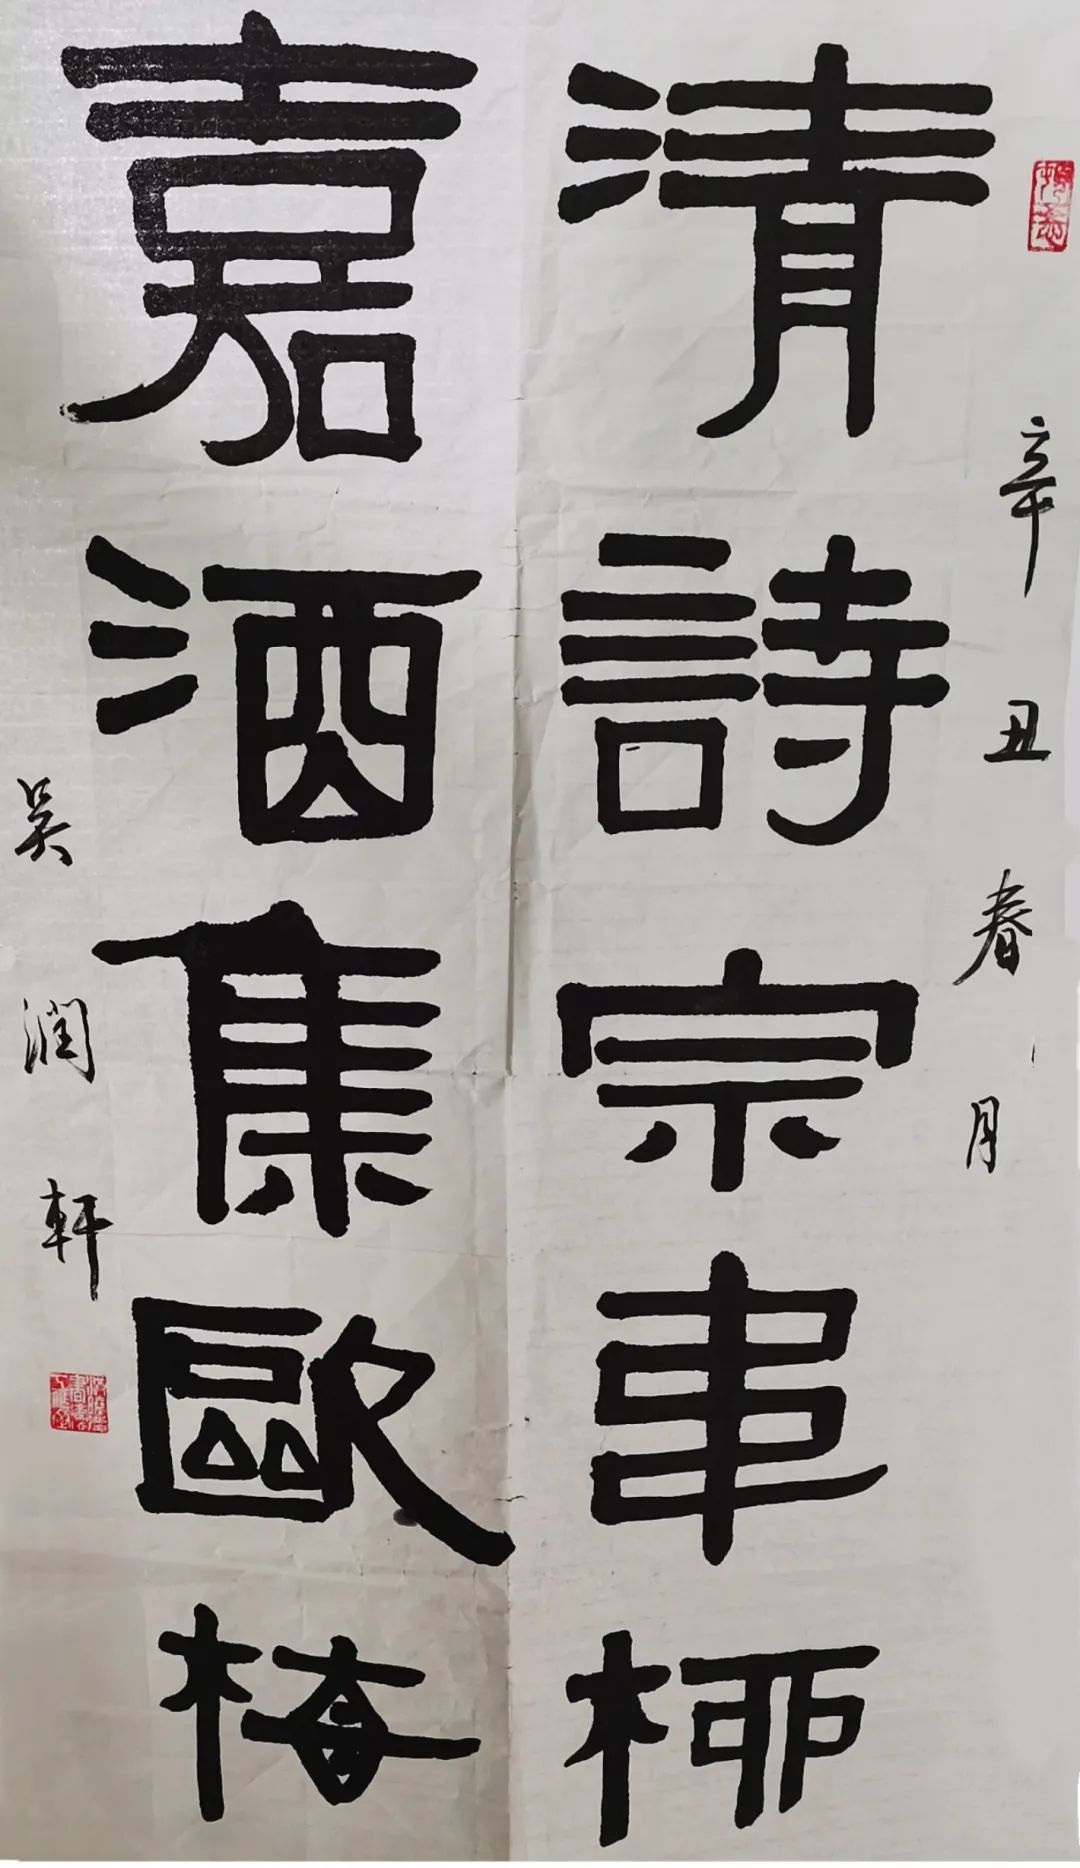 辛丑春月
清詩宗韋柳
嘉酒集歐梅
吴潤軒